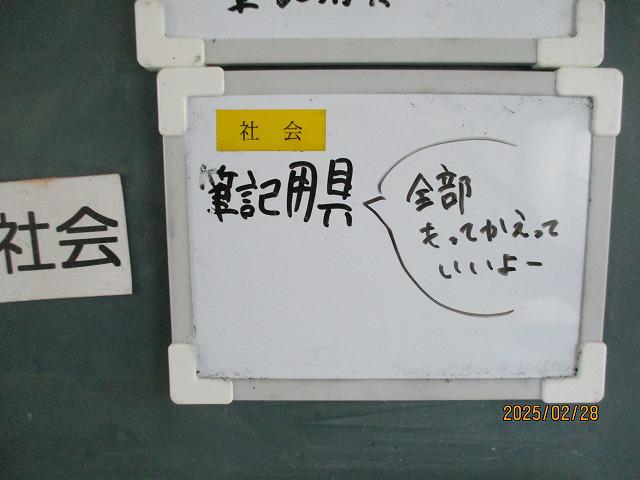 社会
社会
筆記用具
全部
もってかえって
いいよー
2025/02/28